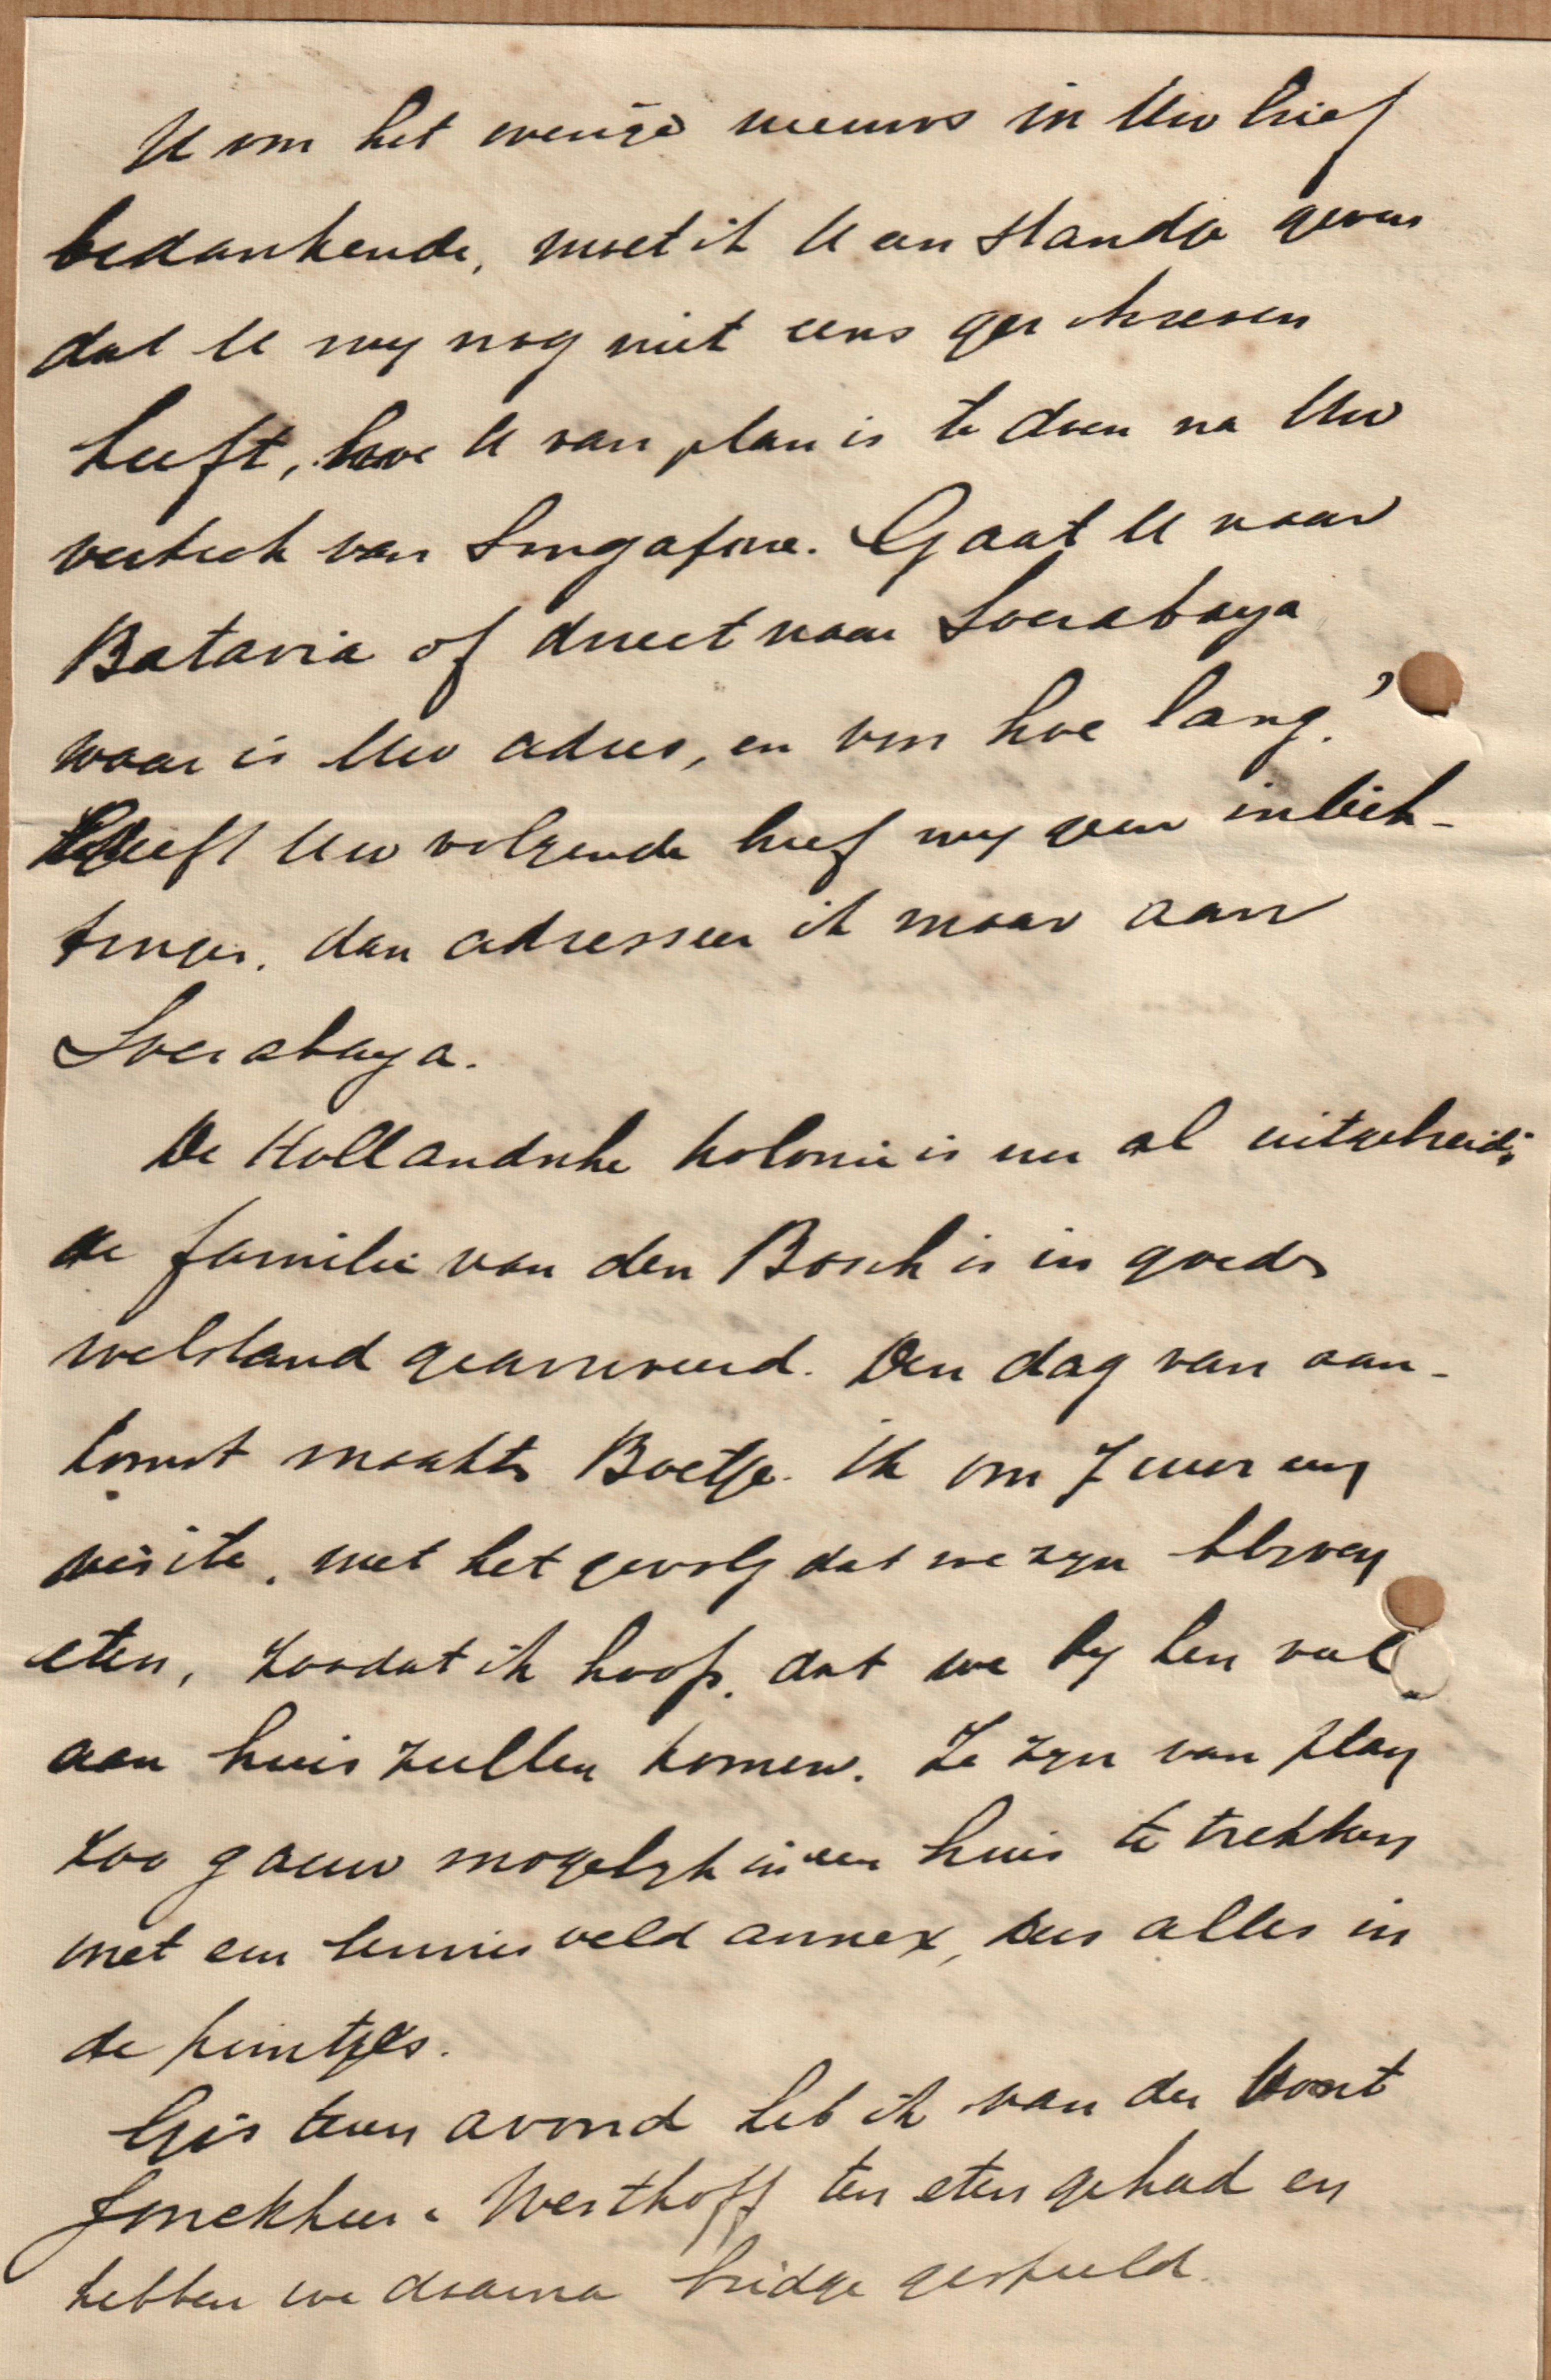 U om het weinige nieuws in Uw brief
bedankende, moet ik U een standje geven
dat U my nog niet eens geschreven
heeft, hoe U van plan is te doen na Uw
vertrek van Singapore. Gaat U naar
Batavia of direct naar Soerabaya
waar is Uw adres, en voor hoe lang?
Heeft Uw volgende brief my geen inlich-
tingen, dan adresseer ik maar aan
Soerabaya.
De Hollandsche kolonie is nu al uitgebreid;
de familie van den Bosch is in goede
welstand gearriveerd. Den dag van aan-
komst maakte Boetje ik om 7 uur een
visite, met het gevolg dat we zyn blyven
eten, zoodat ik hoop, dat we by hen veel
aan huis zullen komen. Ze zyn van plan
zoo gauw mogelyk in een huis te trekken
met een tennisveld annex, dus alles in
de puntjes.
Gisteren avond heb ik van der
Jonckheer & Westhoff ten eten gehad en
hebben we daarna bridge gespeeld.